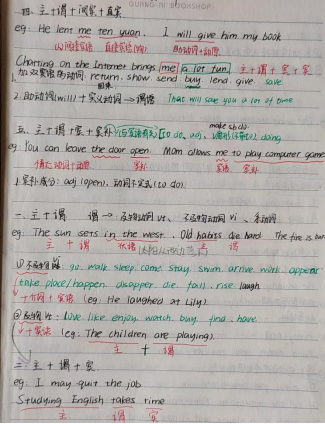 GUANGYI BOOKSHOP
四. 主+谓+间宾+直宾
eg. He lent me ten yuan. I will give him my book
间接宾语 直接宾语(物) 助动词+动原
Chatting on the Internet brings me a lot fun. 主+谓+宾+宾
1. 加双宾语的动词: return. show. send buy. lend. give save
2. 助动词(will)+实义动词→谓语 That will save you a lot of time
make sb do
五. 主+谓+宾+宾补 [to do, adj, doing
eg. You can leave the door open. Mom allows me to play computer game
情态动词+动原 宾补 宾语 宾补
1. 宾补成分: adj (open), 动词不定式 (to do)
一. 主+谓 谓→及物动词vt、不及物动词vi、系动词
eg. The sun sets in the west. Old habits die hard The fire is bur
主 谓 状语 主 谓
①不及物 go walk. sleep. come stay. swim. arrive work appear
take place/happen. disapper. die. fall. rise laugh
+介词+宾语 (eg: He laughed at Lily)
②及物vt: love. like enjoy. watch. buy. find. have
+宾语 (eg: The children are playing).
主 + 谓
二. 主+谓+宾
eg. I may quit the job
Studying English takes time
主 谓 宾